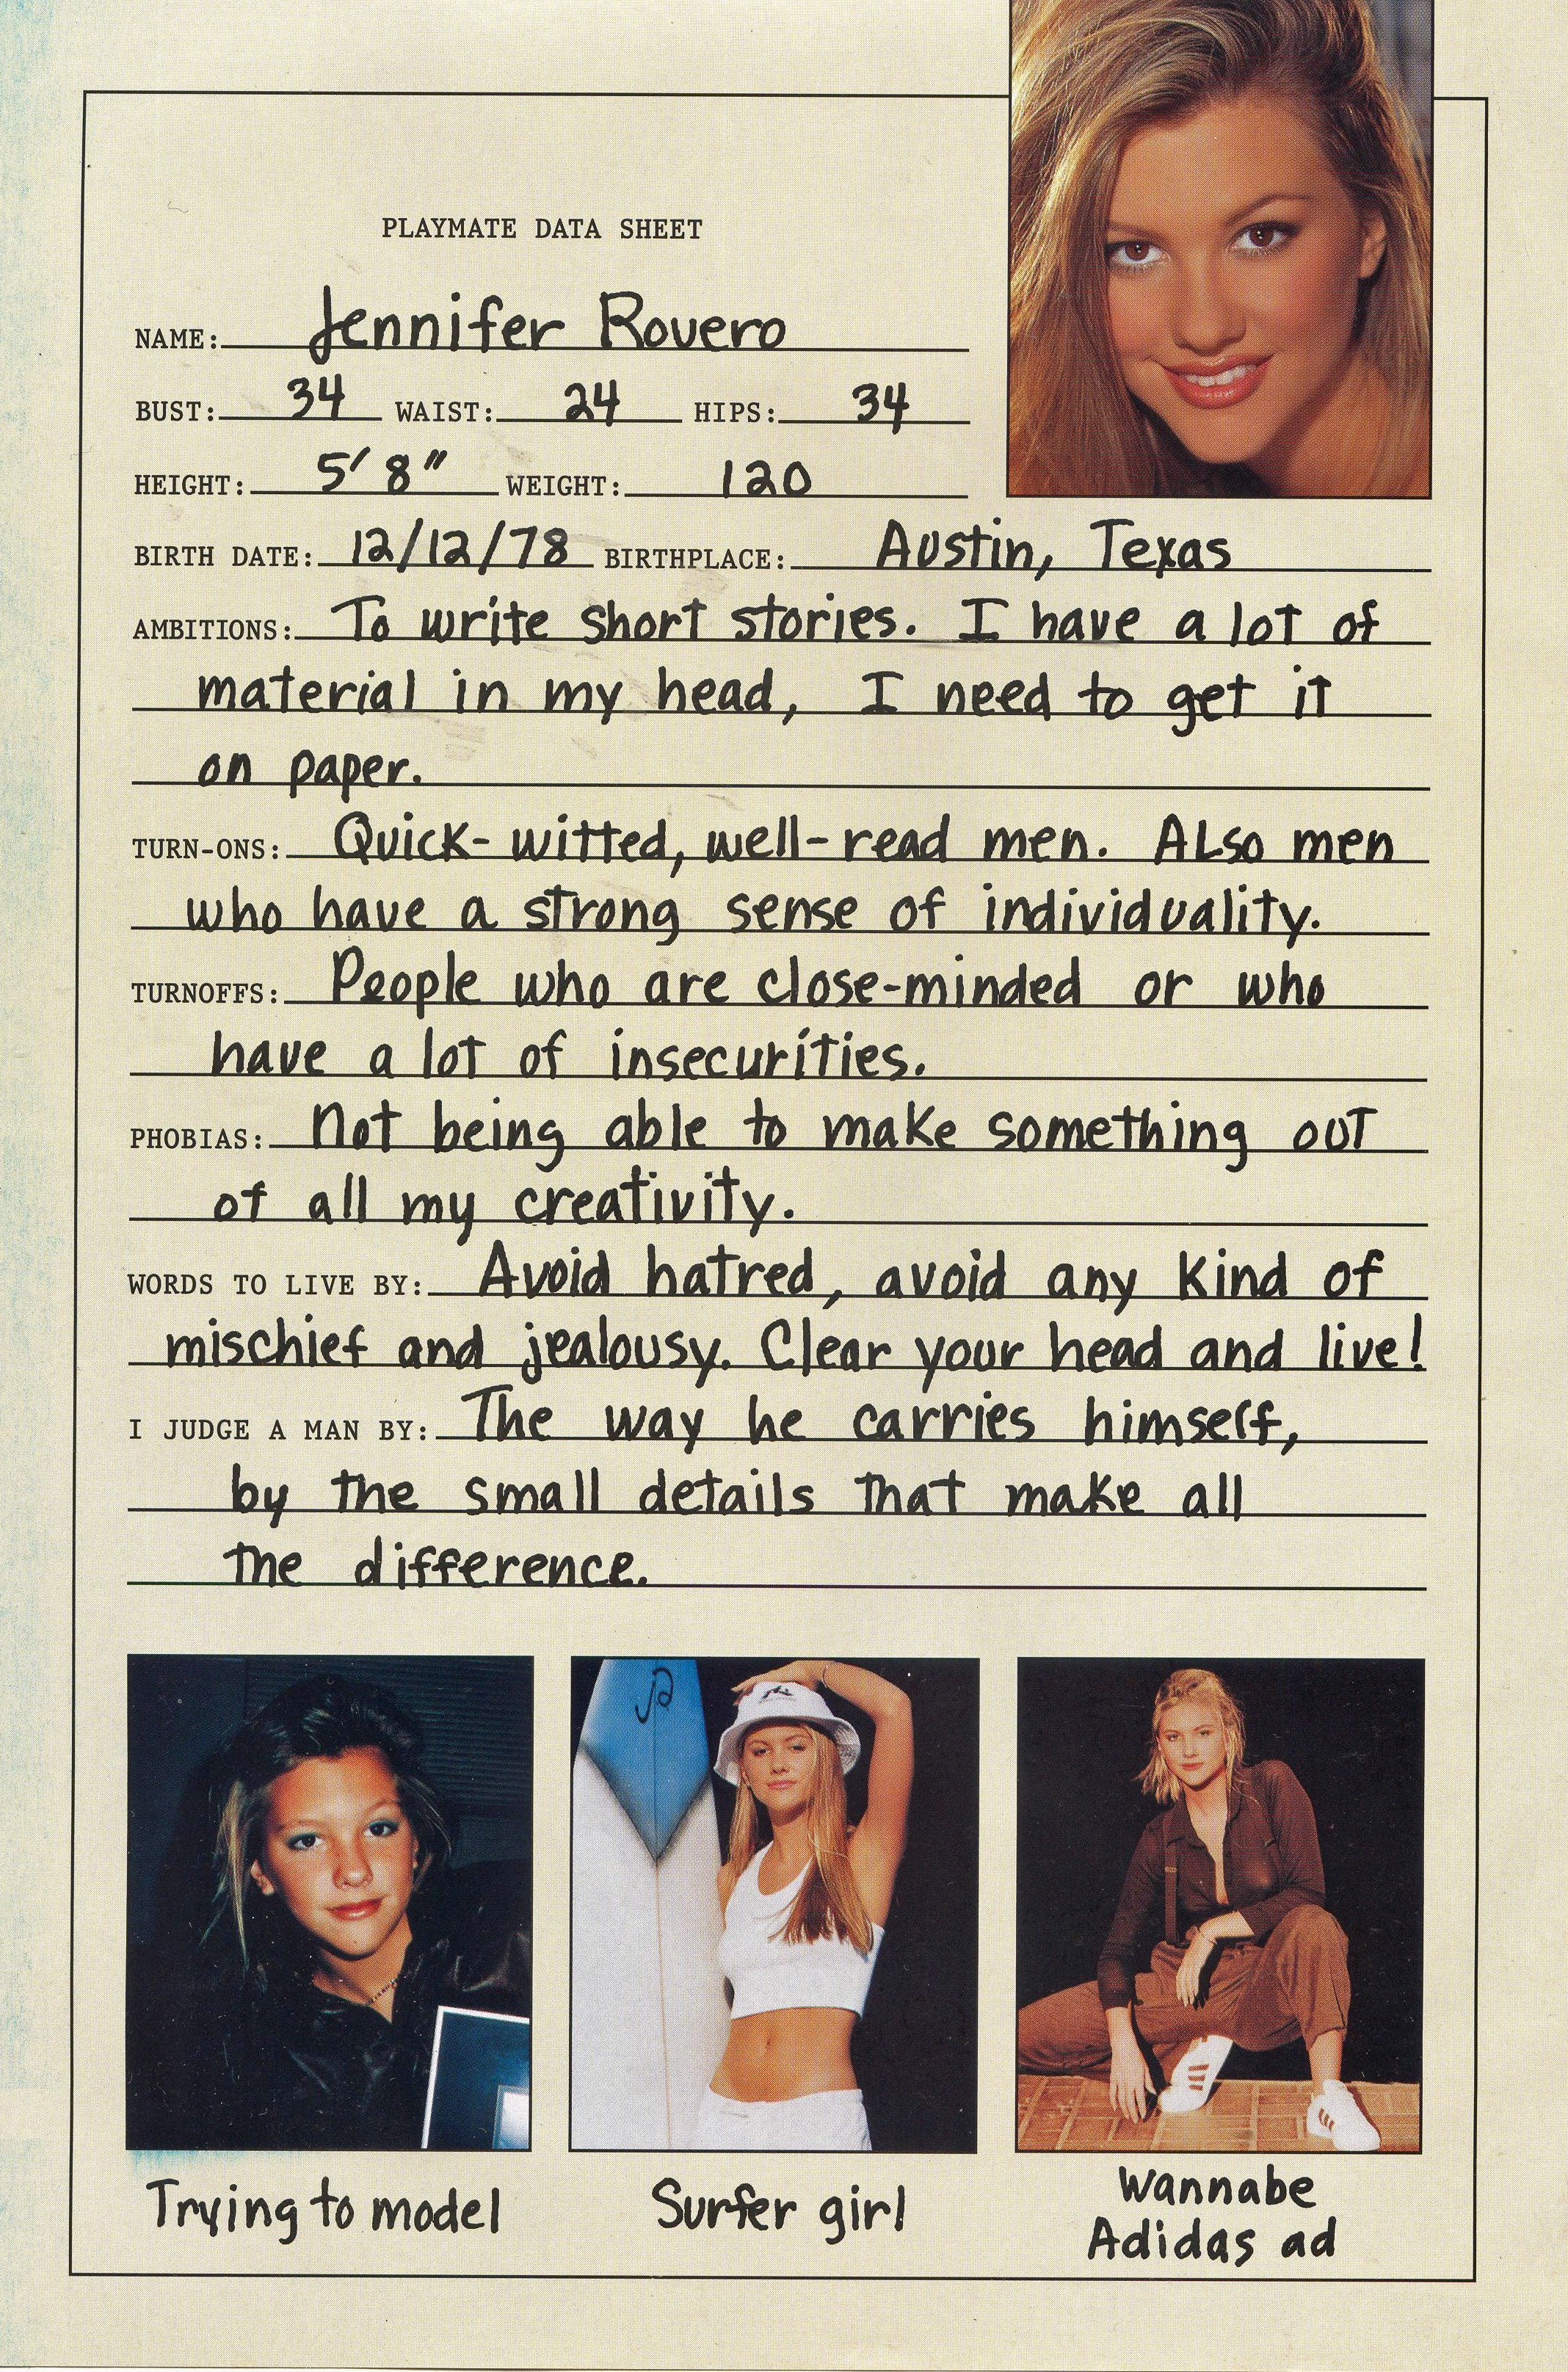 PLAYMATE DATA SHEET
NAME: Jennifer Rovero
BUST: 34 WAIST: 24 HIPS: 34
HEIGHT: 5' 8" WEIGHT: 120
BIRTH DATE: 12/12/78 BIRTHPLACE: Austin, Texas
AMBITIONS: To write short stories. I have a lot of
material in my head, I need to get it
on paper.
TURN-ONS: Quick-witted, well-read men. Also men
who have a strong sense of individuality.
TURNOFFS: People who are close-minded or who
have a lot of insecurities.
PHOBIAS: Not being able to make something out
of all my creativity.
WORDS TO LIVE BY: Avoid hatred, avoid any kind of
mischief and jealousy. Clear your head and live!
I JUDGE A MAN BY: The way he carries himself,
by the small details that make all
the difference.
Trying to model
Surfer girl
Wannabe
Adidas ad